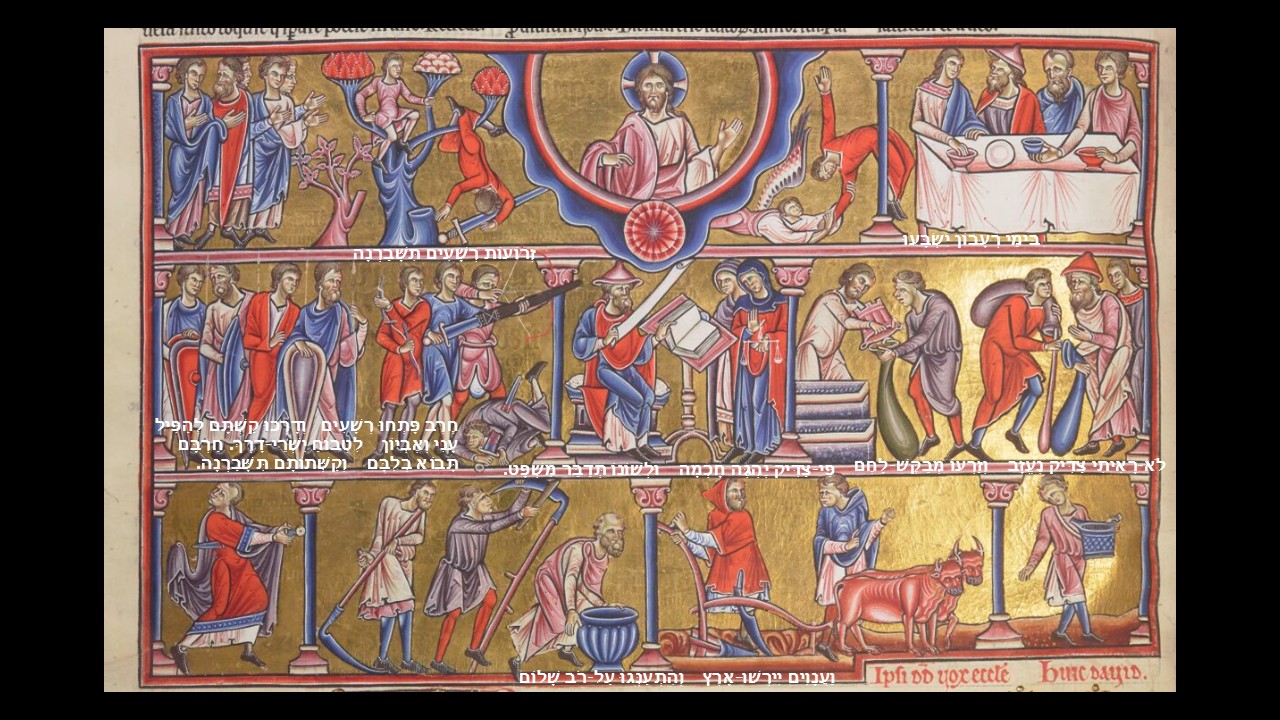 בִּימֵי רְעָבוֹן יִשְׂבָּעוּ
זְרוֹעוֹת רְשָׁעִים תִּשָּׁבַרְנָה
חֶרֶב פָּתְחוּ רְשָׁעִים וְדָרְכוּ קַשְׁתָּם לְהַפִּיל
עָנִי וְאֶבְיוֹן לִטְבוֹחַ יִשְׁרֵי-דָרֶךְ. חַרְבָּם
תָּבוֹא בְלִבָּם וְקַשְּׁתוֹתָם תִּשָּׁבַרְנָה.
לֹא-רָאִיתִי צַדִּיק נֶעֱזָב וְזַרְעוֹ מְבַקֶּשׁ לָחֶם
פִּי-צַדִּיק יֶהְגֶּה חָכְמָה וּלְשׁוֹנוֹ תְּדַבֵּר מִשְׁפָּט.
וַעֲנָוִים יִירְשׁוּ-אָרֶץ וְהִתְעַנְּגוּ עַל-רֹב שָׁלוֹם
Ipsi dd vox eccle Hunc david.